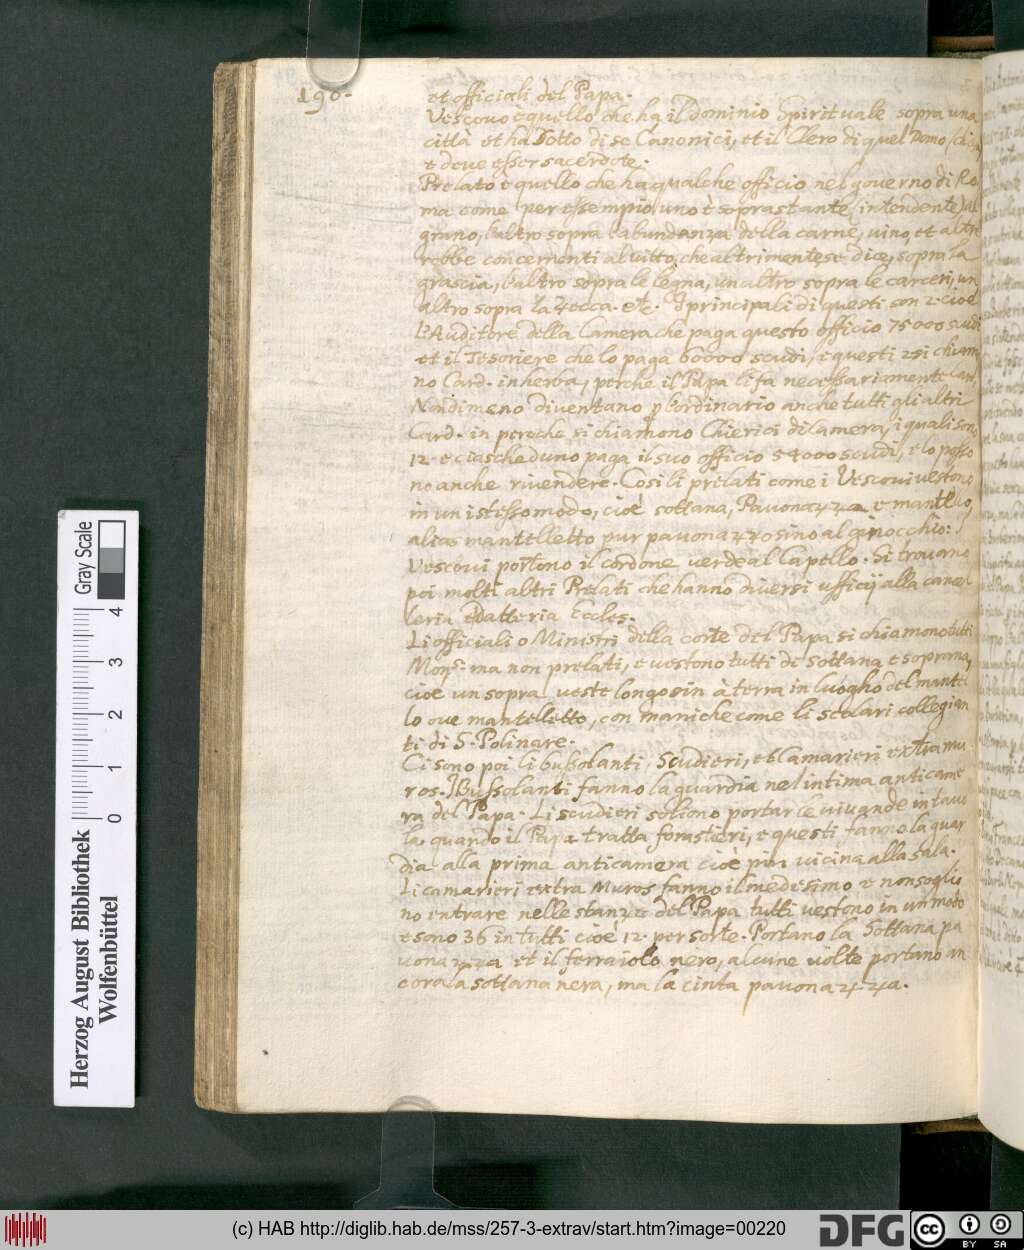 190.
et officiali del Papa.
Vescovo è quello che ha il Dominio Spirituale sopra una
città et ha Sotto di se Canonici, et il Clero di quel Domo
e deve esser sacerdote.
Prelato è quello che ha qualche officio nel governo di Ro
ma come per essempio uno è soprastante (intendente) al
grano, l'altro sopra l'abundanza della carne, vino, et altre
robbe concernenti al vitto, che altrimente se dice, sopra la
grascia, l'altro sopra le legna, un altro sopra le carceri, un
altro sopra la Zecca. etc. I principali di questi son 2. cioè
L'Auditore della Camera che paga questo officio 75000 scudi
et il Tesoriere che lo paga 60000 scudi, e questi 2 si chiam
no Card. in herba, perche il Papa li fa necessariamente Card,
Nondimeno diventano p l'ordinario anche tutti gli altri
Card. in peroche si chiamono Chierici di Camera, i quali sono
12. e ciascheduno paga il suo officio 54000 scudi, e lo posso
no anche rivendere. Cosi li prelati come i Vescovi vestono
in un istesso modo, cioè sottana, Pavonazza e mantello,
alias mantelletto pur pavonazzo sino al ginocchio:
Vescovi portono il cordone verde al Capello. Si trovano
poi molti altri Prelati che hanno diversi ufficij alla cancel
leria e Datteria Eccles.
Li officiali o Ministri della corte del Papa si chiamono tutti
Monsr. ma non prelati, e vestono tutti di sottana e soprana,
cioè un sopra veste longo sin à terra in luogho del mantel
lo ove mantelletto, con maniche come li scolari collegian
ti di S. Polinare.
Ci sono poi li bussolanti, Scudieri, et Camarieri extra mu
ros. I Bussolanti fanno la guardia nel intima anticame
ra del Papa. Li scudieri soliono portar le vivande in tavo
la, quando il Papa tratta forastieri, e questi fanno la guar
dia alla prima anticamera cioè piu vicina alla sala.
Li camarieri extra Muros fanno il medesimo e non soglio
no entrare nelle stanze del Papa tutti vestono in un modo
e sono 36 in tutti cioè 12. per sorte. Portano la Sottana pa
vonazza et il ferraiolo nero, alcune volte portano an
cora la sottana nera, ma la cinta pavonazza.
Herzog August Bibliothek
Wolfenbüttel
Gray Scale
0 1 2 3 4
(c) HAB http://diglib.hab.de/mss/257-3-extrav/start.htm?image=00220
DFG
cc BY SA